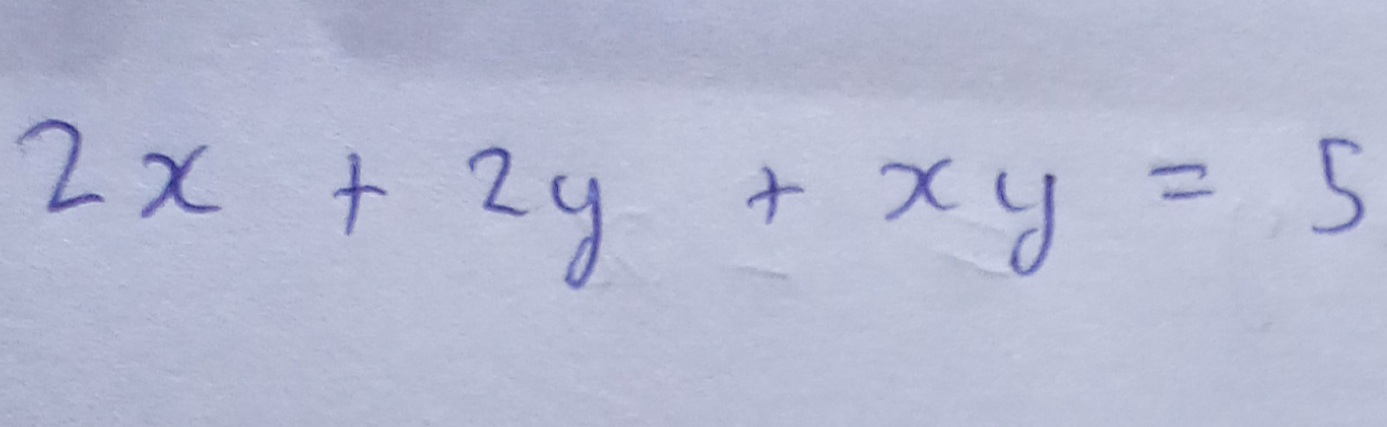 2x + 2y + xy = 5